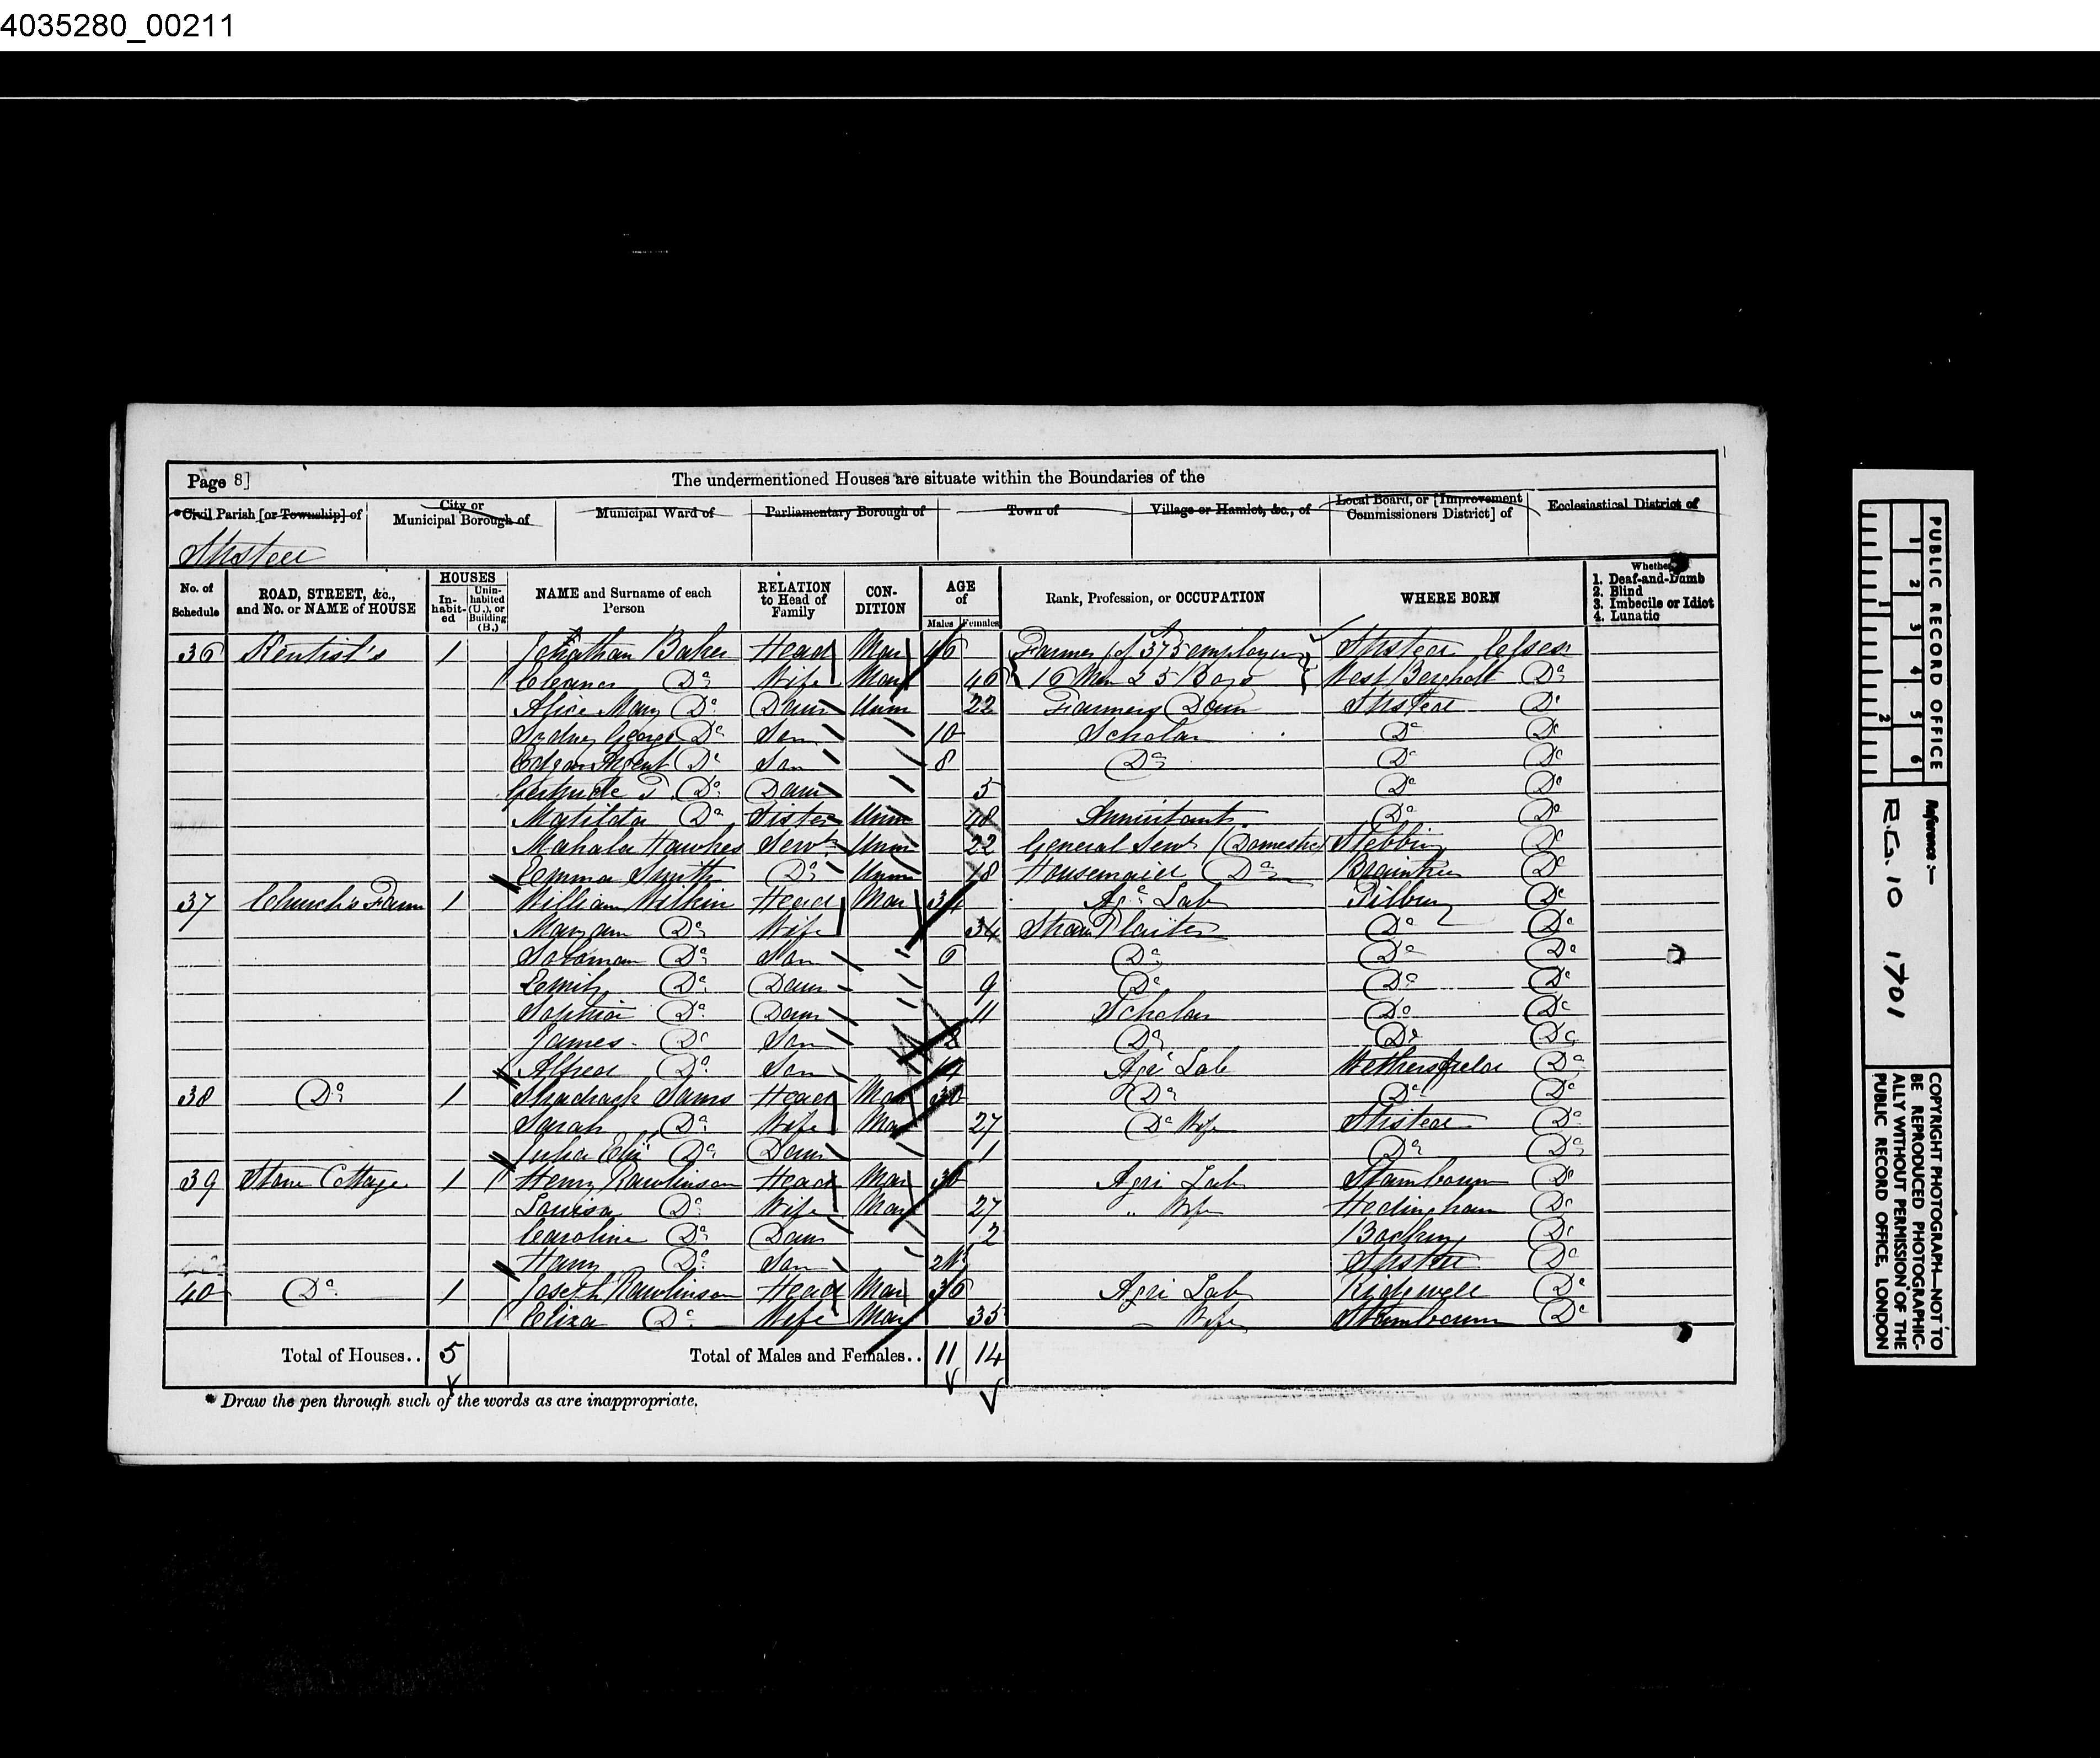 4035280_00211
Page 8] The undermentioned Houses are situate within the Boundaries of the
*Civil Parish [or Township] of City or Municipal Borough of Municipal Ward of Parliamentary Borough of Town of Village or Hamlet, &c., of Local Board, or [Improvement Commissioners District] of Ecclesiastical District of
Stisted
No. of Schedule ROAD, STREET, &c., and No. or NAME of HOUSE HOUSES Inhabited Uninhabited (U.), or Building (B.) NAME and Surname of each Person RELATION to Head of Family CONDITION AGE of Males Females Rank, Profession, or OCCUPATION WHERE BORN Whether 1. Deaf-and-Dumb 2. Blind 3. Imbecile or Idiot 4. Lunatic
36 Kentish's 1 Jonathan Baker Head Mar 46 Farmer of 375 employing Stisted Essex
Eleanor Do Wife Mar 46 16 Men 2 5 Boys West Bergholt Do
Alice Mary Do Daur Unm 22 Farmers Daur Stisted Do
Sydney George Do Son 10 Scholar Do Do
Edgar Do Son 8 Do Do Do
Gertrude Do Daur 5 Do Do
Matilda Do Sister Unm 48 Annuitant Do Do
Mahala Hawkes Servt Unm 22 General Servt (Domestic) Stebbing Do
Emma Smith Do Unm 18 Housemaid Do Braintree Do
37 Church's Farm 1 William Wilkin Head Mar 34 Ag. Lab Do
Maryann Do Wife 34 Straw Plaiter Do Do
Soloman Do Son 6 Do Do Do
Emily Do Daur 9 Do Do Do
Sophia Do Daur 11 Scholar Do Do
James Do Son 8 Do Do Do
Alfred Do Son Agri Lab Wethersfield Do
38 Do 1 Shadrack Sams Head Mar 30 Do Do Do
Sarah Do Wife Mar 27 Do Wife Stisted Do
Julia Do Daur 1 Do Do
39 Stone Cottage 1 Henry Rawlinson Head Mar 30 Agri Lab Stambourn Do
Louisa Do Wife Mar 27 " Wife Hedingham Do
Caroline Do Daur 2 Bocking Do
Harry Do Son Stisted Do
40 Do 1 Joseph Rawlinson Head Mar 36 Agri Lab Ridgewell Do
Eliza Do Wife Mar 35 Wife Stambourn Do
Total of Houses.. 5 Total of Males and Females.. 11 14
* Draw the pen through such of the words as are inappropriate.
PUBLIC RECORD OFFICE
1 2 3 4 5 6
1 2
Reference:—
R.G. 10 1701
COPYRIGHT PHOTOGRAPH—NOT TO
BE REPRODUCED PHOTOGRAPHIC-
ALLY WITHOUT PERMISSION OF THE
PUBLIC RECORD OFFICE, LONDON